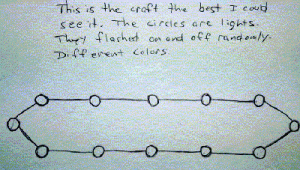 This is the craft the best I could
see it. The circles are lights.
They flashed on and off randomly.
Different colors